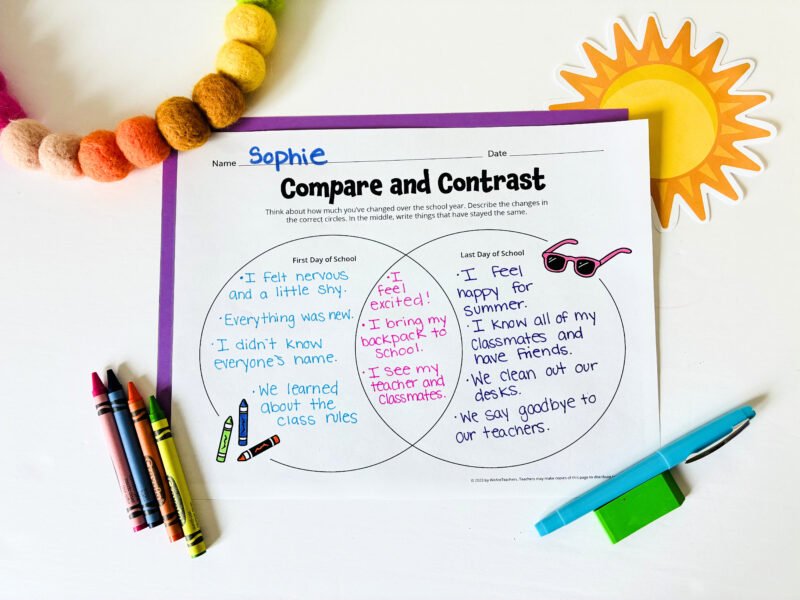 Name Sophie Date
Compare and Contrast
Think about how much you've changed over the school year. Describe the changes in
the correct circles. In the middle, write things that have stayed the same.
First Day of School
•I felt nervous
and a little shy.
•Everything was new.
•I didn't know
everyone's name.
•We learned
about the
class rules
•I
feel
excited!
•I bring my
backpack to
school.
•I see my
teacher and
classmates.
Last Day of School
•I feel
happy for
summer.
•I know all of my
classmates and
have friends.
•We clean out our
desks.
•We say goodbye to
our teachers.
by WeAreTeachers. Teachers may make copies of this page to